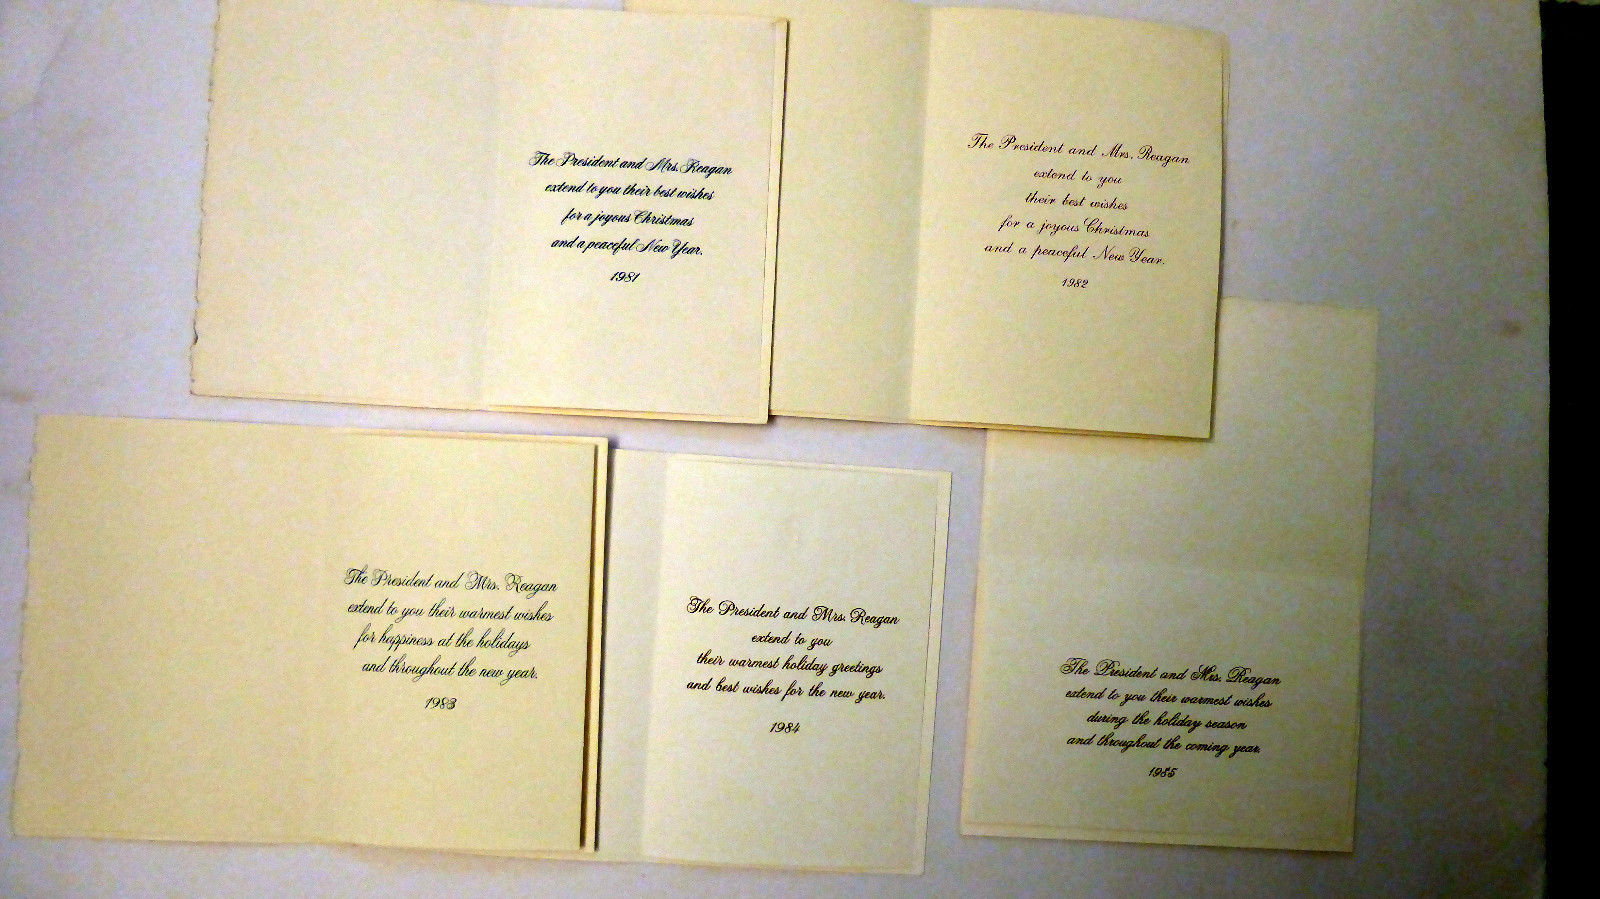 The President and Mrs. Reagan
extend to you their best wishes
for a joyous Christmas
and a peaceful New Year.
1981
The President and Mrs. Reagan
extend to you
their best wishes
for a joyous Christmas
and a peaceful New Year.
1982
The President and Mrs. Reagan
extend to you their warmest wishes
for happiness at the holidays
and throughout the new year.
1983
The President and Mrs. Reagan
extend to you
their warmest holiday greetings
and best wishes for the new year.
1984
The President and Mrs. Reagan
extend to you their warmest wishes
during the holiday season
and throughout the coming year.
1985